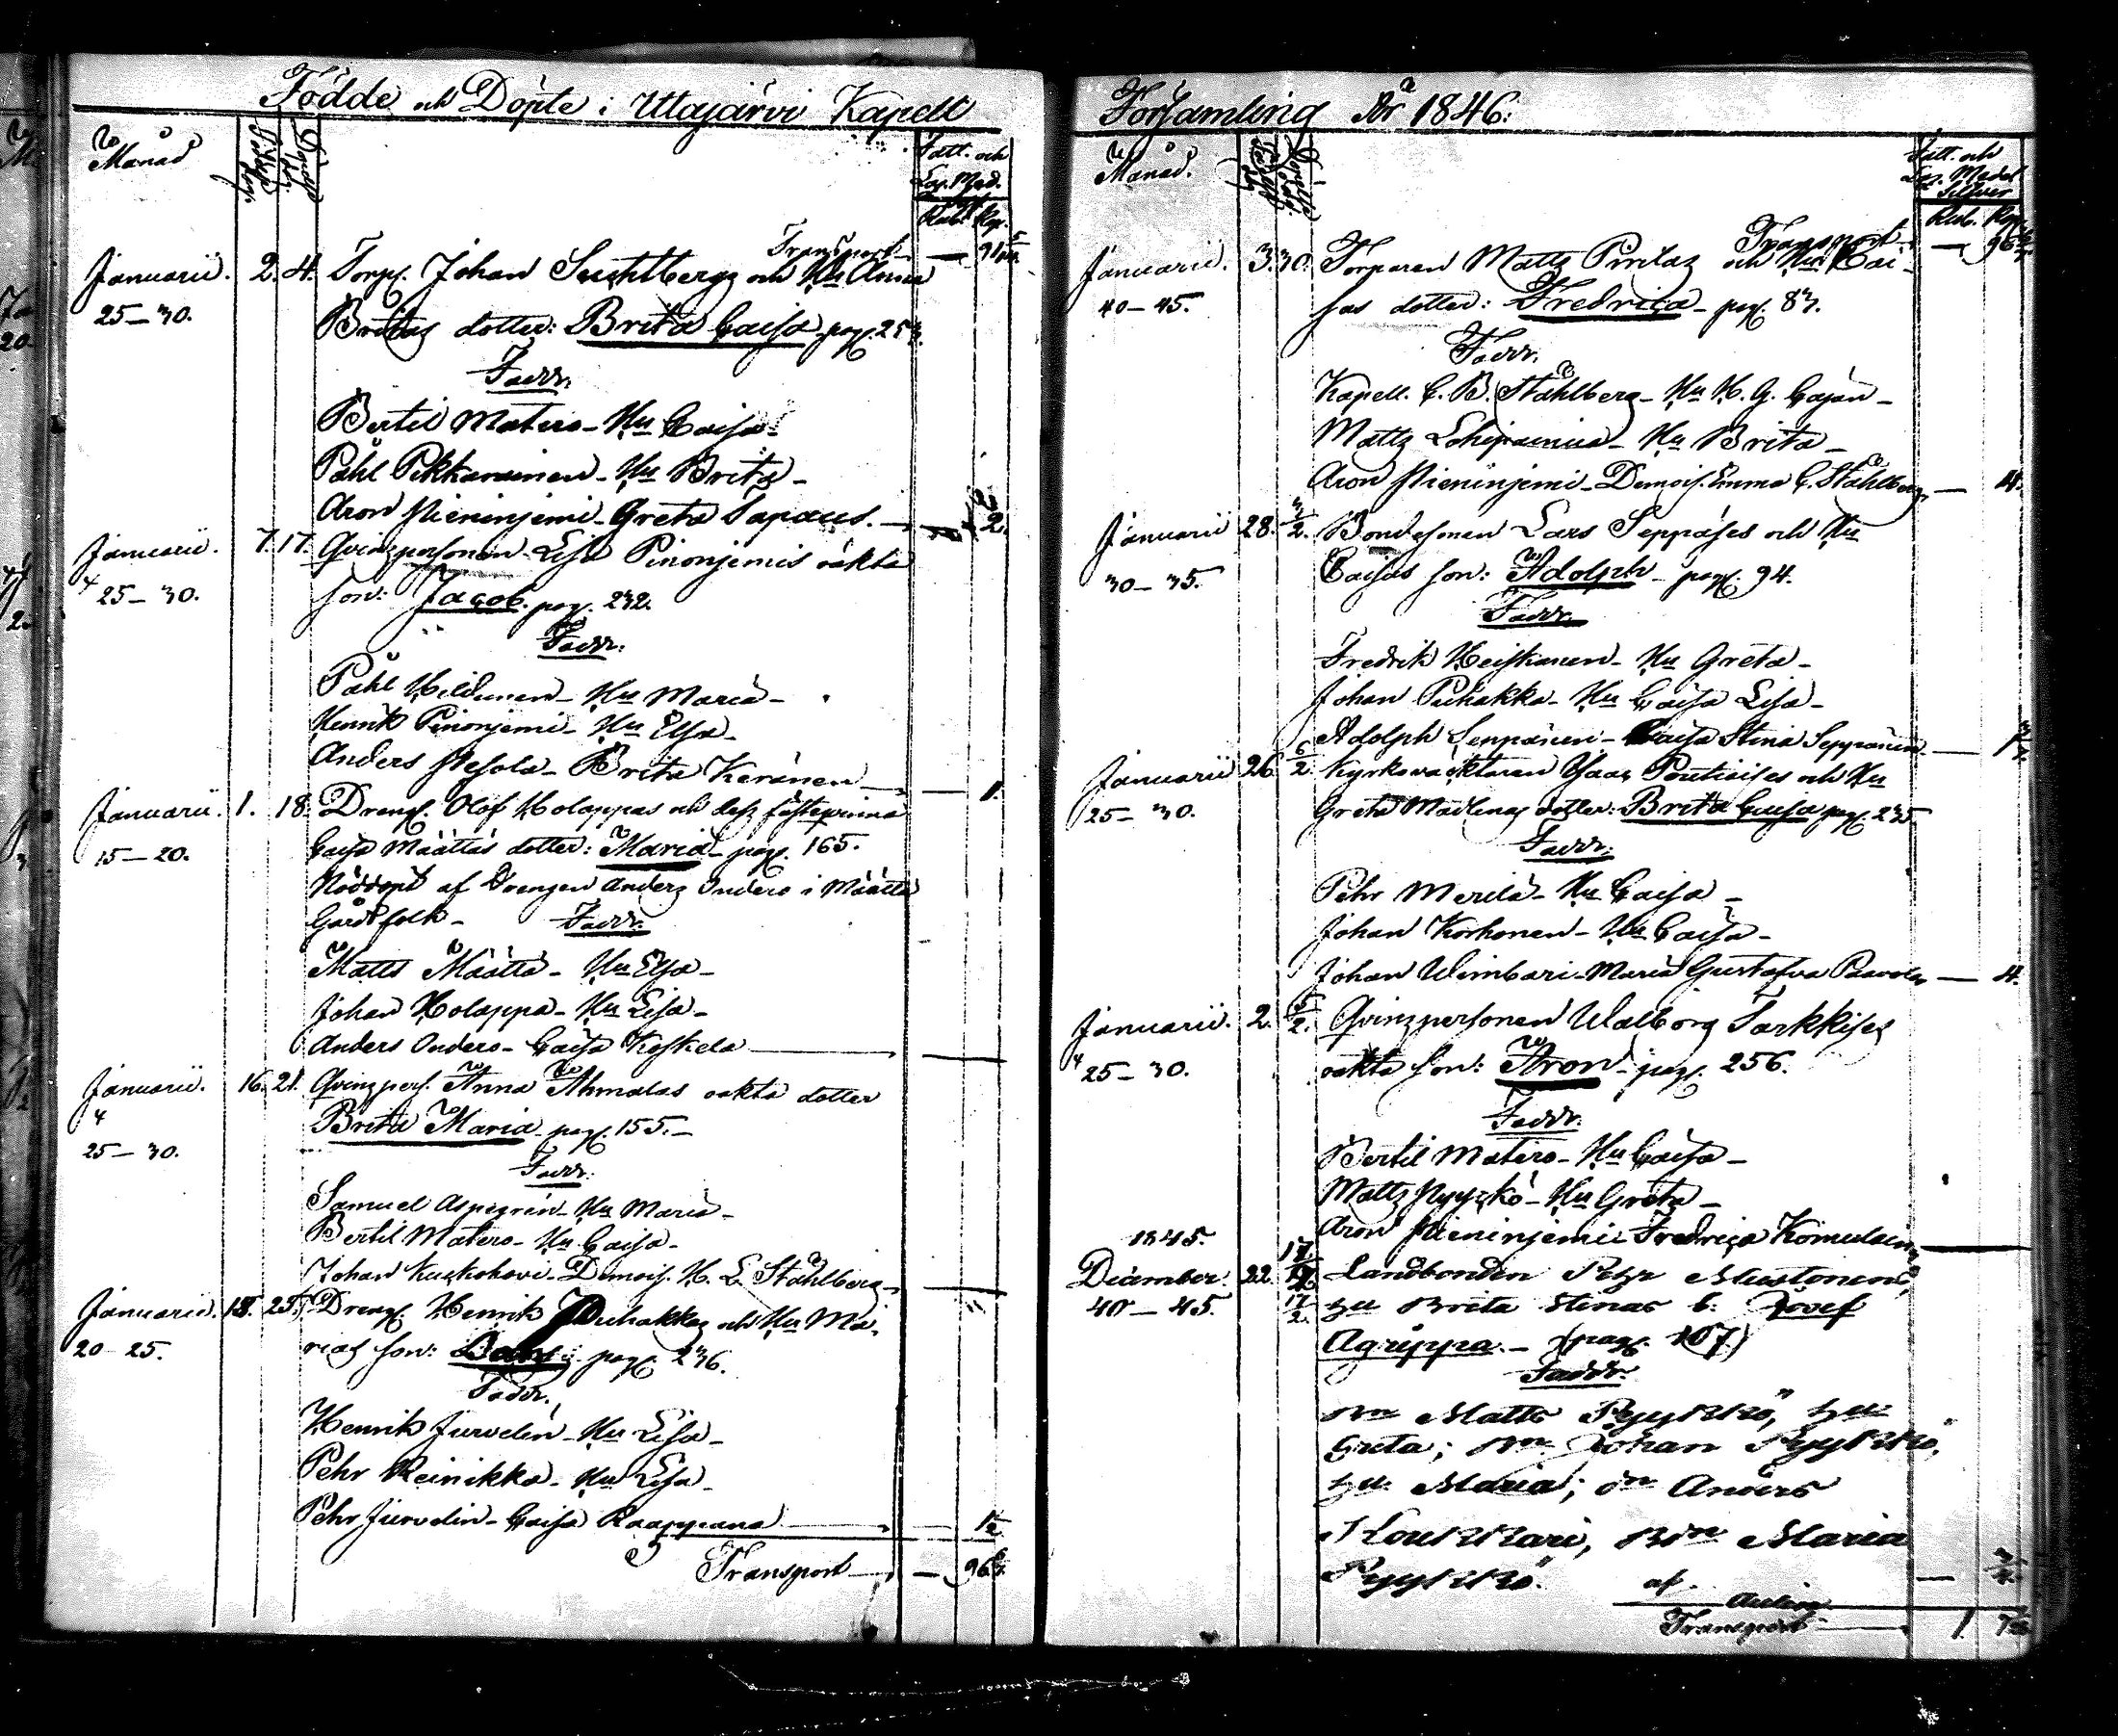 Födde och Döpte i Uttajärvi Kapell
Månad
Fatt. och
Rub. Kop.
Transport
Januarii. 2. 4. Torp. Johan Suchtbergs och Hu Anna
25-30. Britas dotter: Brita Caisa pag. 253.
Faddr.
Bertil Matero - Hu Caisa -
Påhl Pikkarainen - Hu Brita -
Aron Nieninjemi - Greta Tapaus. 2.
Januarii. 7. 17. Qvinspersonen Lisa Pinonjemis oäkta
4 25-30. son: Jacob. pag. 232.
Faddr:
Påhl Hildunen - Hu Maria -
Henrik Pinonjemi - Hu Elsa -
Anders Nesola - Brita Keränen 1.
Januarii. 1. 18. Dreng. Olof Holappas och dess fästeqvinna
15-20. Caisa Määttäs dotter: Maria pag. 165.
Nöddöpt af Drengen Anders Ondero i Määttä
Gårdsfolk - Faddr.
Matts Määttä - Hu Elsa -
Johan Holappa - Hu Lisa -
Anders Ondero - Caisa Koskela
Januarii. 16. 21. Qvinspers. Anna Ahmalas oäkta dotter
4
Brita Maria pag. 155. -
25-30.
Faddr.
Samuel Aspegrén - Hu Maria -
Bertil Matero - Hu Caisa -
Johan Kuskohovi - Demois. H. L. Ståhlberg -
Januarii. 18. 25. Dreng. Henrik Puhakkas och Hu Ma-
20-25. rias son: pag. 236.
Faddr.
Henrik Jurvelin - Hu Lisa -
Pehr Reinikka - Hu Lisa -
Pehr Jurvelin - Caisa Raappana
Transport 96
Församling År 1846.
Månad.
Fatt. och
Silfver
Rub. Kop.
Transport 96
Januarii. 3. 30. Torparen Matts Pirilas och Hu Cai-
40-45. sas dotter: Fredrica - pag. 87.
Faddr.
Kapell. C. B. Ståhlberg - Hu H. G. Cajan -
Matts Lohipainua - Hu Brita -
Aron Nieninjemi - Demois. Emma C. Ståhlberg 4.
Januarii 28. 3/2. Bondesonen Lars Seppäses och Hu
30-35. Caisas son: Adolph - pag. 94.
Faddr.
Fredrik Heiskanen - Hu Greta -
Johan Puhakka - Hu Caisa Lisa -
Adolph Seppänen - Caisa Stina Seppänen
Januarii 26. 6/2 Kyrkoväktaren Isaac Poutiaises och Hu
25-30. Greta Madlenas dotter: Brita Caisa pag. 235.
Faddr.
Pehr Merilä - Hu Caisa -
Johan Korhonen - Hu Caisa -
Johan Wimbari - Maria Gustafva Paavola 4.
Januarii. 2. 5/2. Qvinspersonen Walborg Tarkkises
4 25-30. oäkta son: Aron - pag. 256.
Faddr.
Bertil Matero - Hu Caisa -
Matts Pyyskö - Hu Greta -
Aron Nieninjemi - Fredrica Komulainen
1845.
December. 22. Landbonden Pehr Mustonens,
40-45. 17/2. Hu Brita Stinas b. Josef
Agrippa. - (pag. 107)
Faddr.
Bn Matts Pyykkö, Hu
Greta; Bn Johan Pyykkö,
Hu Maria; Dn Anders
Koukkari, Maria
Pyykkö.
Transport 1.